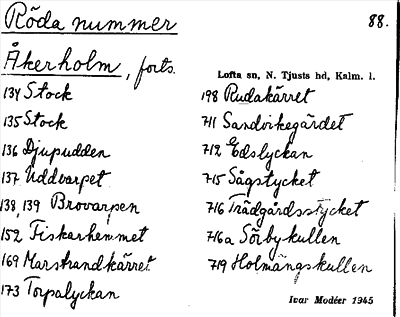 Röda nummer
88.
Åkerholm, forts.
Lofta sn, N. Tjusts hd, Kalm. l.
134 Stock
135 Stock
136 Djupudden
137 Uddvarpet
138, 139 Brovarpen
152 Fiskarhemmet
169 Marstrandkärret
173 Torpalyckan
198 Rudakärret
711 Sandvikegärdet
712 Edslyckan
715 Sågstycket
716 Trädgårdsstycket
716a Sörbykullen
719 Holmängskullen
Ivar Modéer 1945